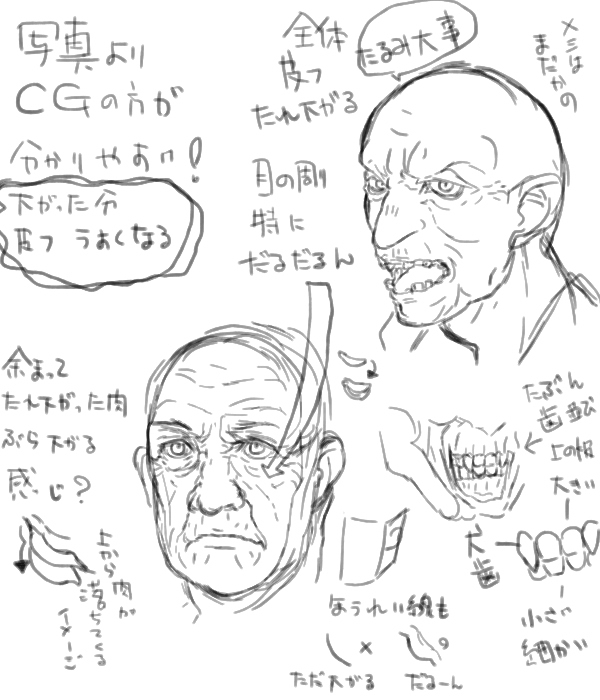 写真より
CGの方が
分かりやすい!
下がった分
皮フ うすくなる
全体
皮フ
たれ下がる
たるみ大事
メミは
まだかの
目の周り
特に
だるだるん
余まって
たれ下がった肉
ぶら下がる
感じ?
上から肉が
落ちてくる
イメージ
たぶん
歯並び
上の幅
大きい
犬歯
小さい
細かい
ほうれい線も
ただ下がる
×
だるーん